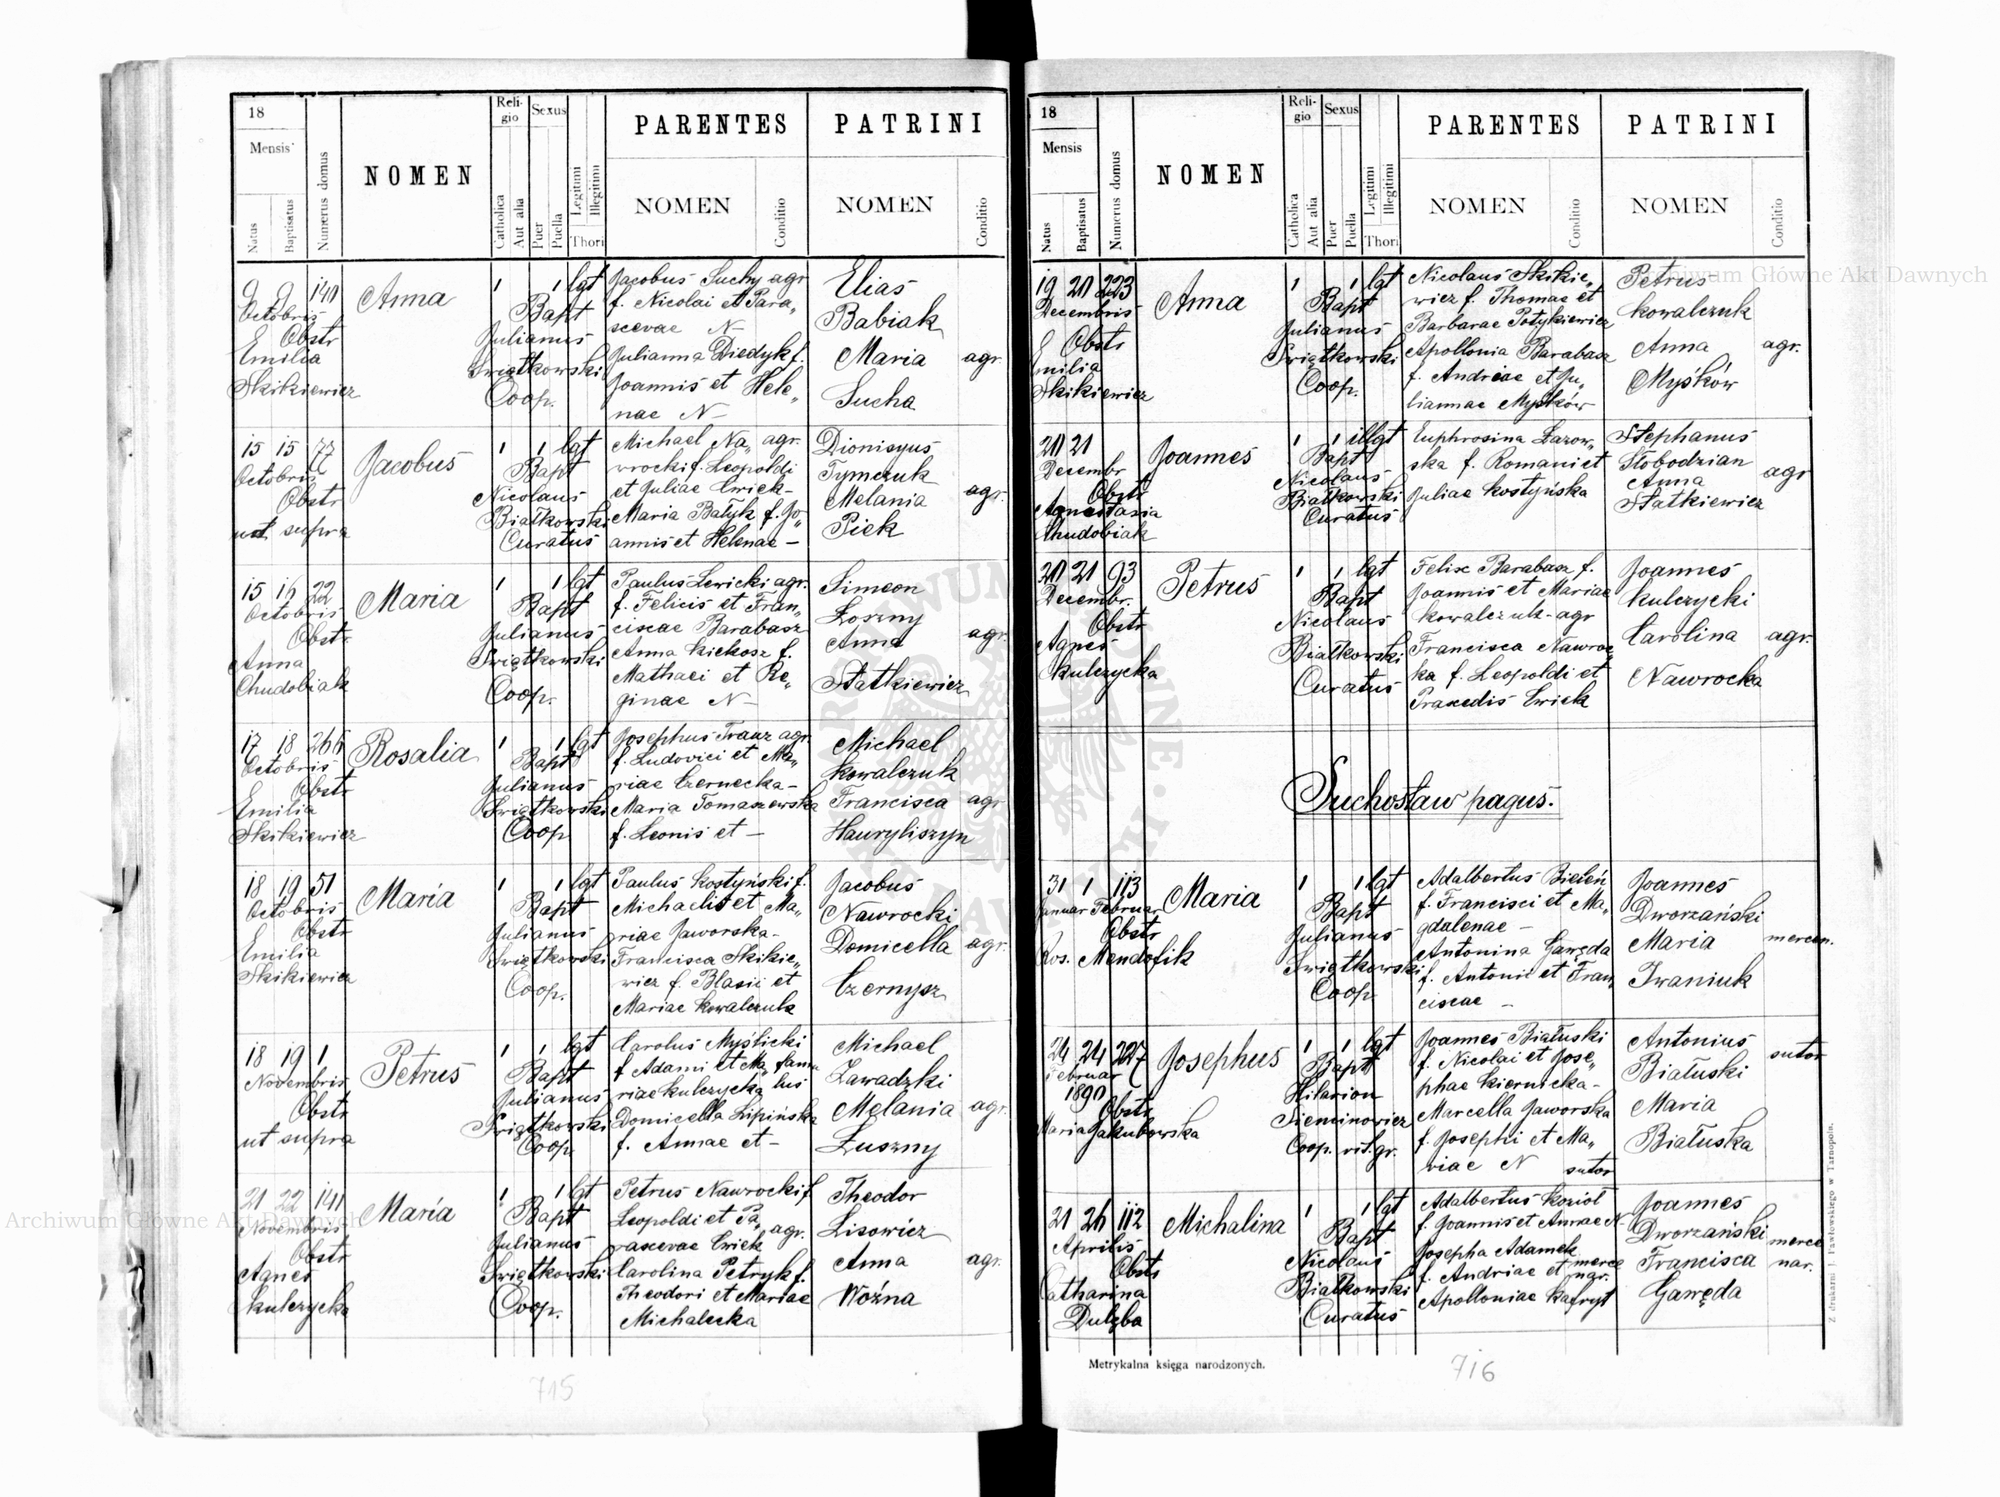 18
Mensis
Natus
Baptisatus
Numerus domus
NOMEN
Religio
Catholica
Aut alia
Sexus
Puer
Puella
Legitimi
Illegitimi
Thori
PARENTES
NOMEN
Conditio
PATRINI
NOMEN
Conditio
9 9 140 Anna 1 1 lgt Jacobus Suchy agr Elias
Octobris Bapt f. Nicolai et Para„ Babiak
Obstr Julianus scevae N–
Emilia Świątkowski Julianna Diedyk f. Maria agr.
Skikiewicz Coop. Joannis et Hele„ Sucha
nae N–
15 15 77 Jacobus 1 1 lgt Michael Na„ agr. Dionisyus
Octobris Bapt wrocki f. Leopoldi Tymczuk
Obstr Nicolaus et Juliae Ćwiek– Melania agr.
ut supra Białkowski Maria Bałyk f. Jo„ Piek
Curatus annis et Helenae –
15 16 22 Maria 1 1 lgt Paulus Lewicki agr. Simeon
Octobris Bapt f. Felicis et Fran„ Łoszny
Obstr Julianus ciscae Barabasz Anna agr.
Anna Świątkowski Anna Kiekosz f. Statkiewicz
Chudobiak Coop. Mathaei et Re„
ginae N–
17 18 266 Rosalia 1 1 lgt Josephus Franz agr. Michael
Octobris Bapt f. Ludovici et Ma„ Kowalczuk
Obstr Julianus riae Czernecka–
Emilia Świątkowski Maria Tomaszewska Francisca agr
Skikiewicz Coop f. Leonis et – Hauryliszyn
18 19 51 Maria 1 1 lgt Paulus Kostyński f. Jacobus
Octobris Bapt Michaelis et Ma„ Nawrocki
Obstr Julianus riae Jaworska– Domicella agr.
Emilia Świątkowski Francisca Skikie„
Skikiewicz Coop. wicz f. Blasii et Czernysz
Mariae Kowalczuk
18 19 1 Petrus 1 1 lgt Carolus Myślicki Michael
Novembris Bapt f Adami et Ma„ famu Zawadzki
Obstr Julianus riae Kulczycka lus
ut supra Świątkowski Domicella Lipińska Melania agr.
Coop. f. Annae et – Łuszny
21 22 141 Maria 1 1 lgt Petrus Nawrocki f Theodor
Novembris Bapt Leopoldi et Pa„ agr. Lisowicz
Obstr Julianus rascevae Ćwiek
Agnes Świątkowski Carolina Petryk f. Anna agr.
Kulczycka Coop. Theodori et Mariae Woźna
Michalecka
715
18
Mensis
Natus
Baptisatus
Numerus domus
NOMEN
Religio
Catholica
Aut alia
Sexus
Puer
Puella
Legitimi
Illegitimi
Thori
PARENTES
NOMEN
Conditio
PATRINI
NOMEN
Conditio
Archiwum Główne Akt Dawnych
19 20 223 Anna 1 1 lgt Nicolaus Skikie„ Petrus
Decembris Bapt wicz f. Thomae et Kowalczuk
Obstr Julianus Barbarae Potykiewicz
Emilia Świątkowski Apollonia Barabasz Anna agr.
Skikiewicz Coop. f. Andreae et Ju„ Myśków
liannae Myśków
20 21 Joannes 1 1 illgt Euphrosina Łazow„ Stephanus
Decembr Bapt ska f. Romani et Słobodzian agr
Obstr Nicolaus Juliae Kostyńska Anna
Anastasia Białkowski Statkiewicz
Chudobiak Curatus
20 21 93 Petrus 1 1 lgt Felix Barabasz f. Joannes
Decembr. Bapt Joannis et Mariae Kulczycki
Obstr Nicolaus Kowalczuk– agr
Agnes Białkowski Francisca Nawroc„ Carolina agr.
Kulczycka Curatus ka f. Leopoldi et Nawrocka
Praxedis Ćwiek
Suchostaw pagus.
31 1 113 Maria 1 1 lgt Adalbertus Bieleń Joannes
Januar Februar Bapt f. Francisci et Ma„ Dworzański
Obstr Julianus gdalenae –
Ros. Mendofik Świątkowski Antonina Gawęda Maria mercen.
Coop f. Antonii et Fran„ Iwaniuk
ciscae –
24 24 227 Josephus 1 1 lgt Joannes Białuski Antonius sutor
Februar Bapt f. Nicolai et Jose„ Białuski
1890 Hilarion phae Kiernicka–
Obstr Sieminowicz Marcella Jaworska Maria
Maria Jakubowska Coop. rit. gr. f. Josephi et Ma„ Białuska
riae N sutor
21 26 112 Michalina 1 1 lgt Adalbertus Kozioł Joannes
Aprilis Bapt f. Joannis et Annae N– Dworzański merce
Obstr Nicolaus Josepha Adamek merce Francisca nar.
Catharina Białkowski f. Andreae et nar. Gawęda
Dulęba Curatus Apolloniae
Metrykalna księga narodzonych.
716
Z drukarni J. Pawłowskiego w Tarnopolu.
Archiwum Główne Akt Dawnych